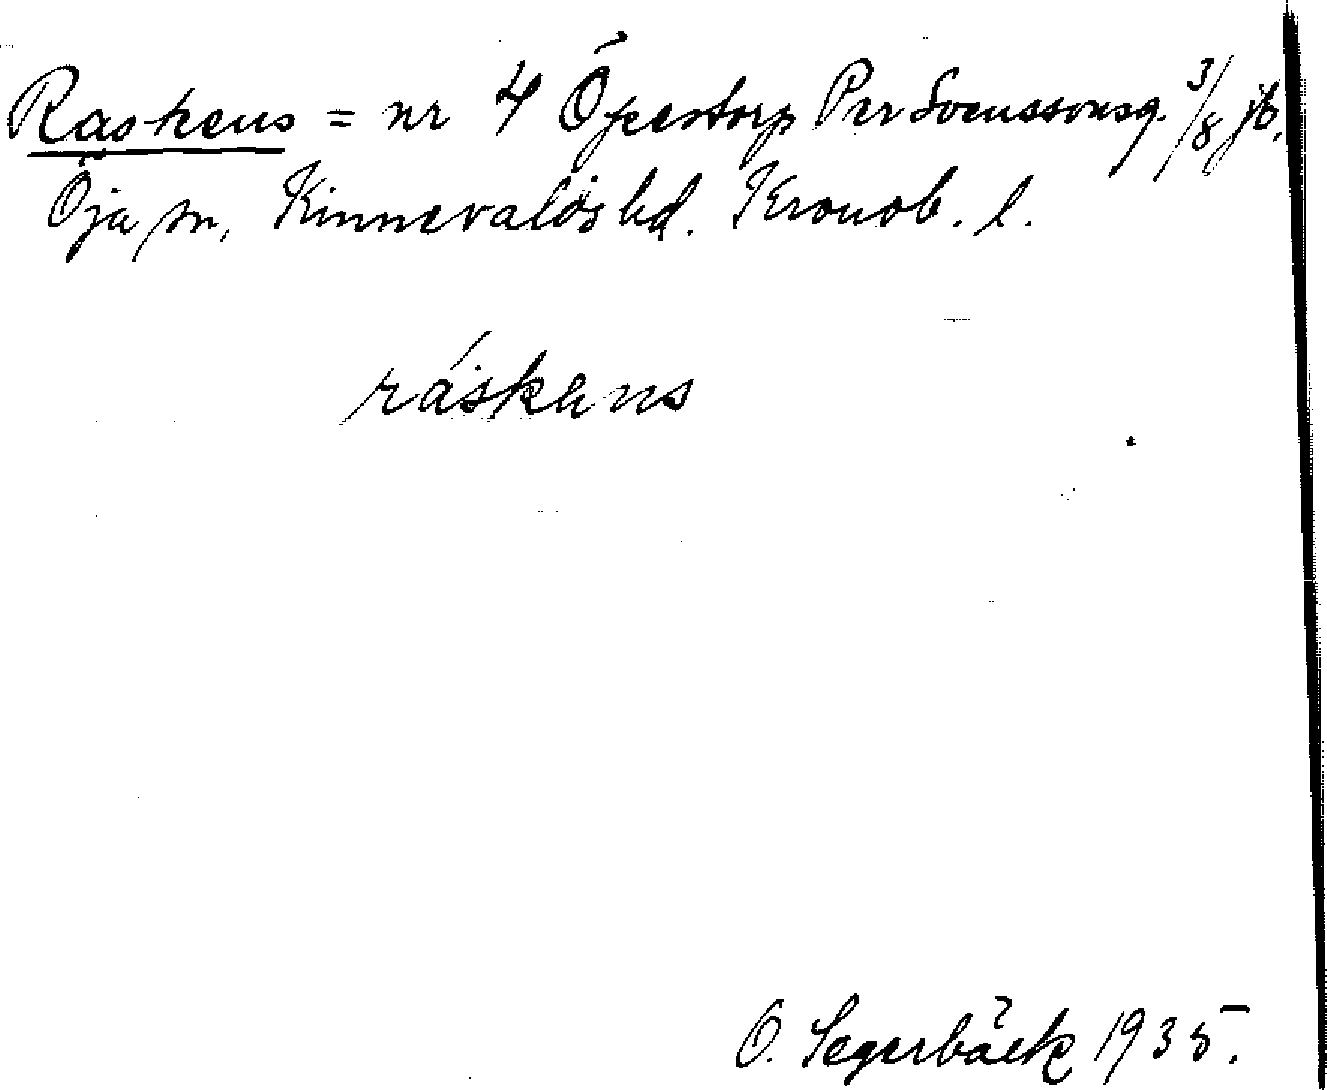 Raskens = nr 4 Öpestorp Per Svenssonsg. 3/8 jb,
Öja sn, Kinnevalds hd. Kronob. l.
ráskens
O. Segerbäck 1935.